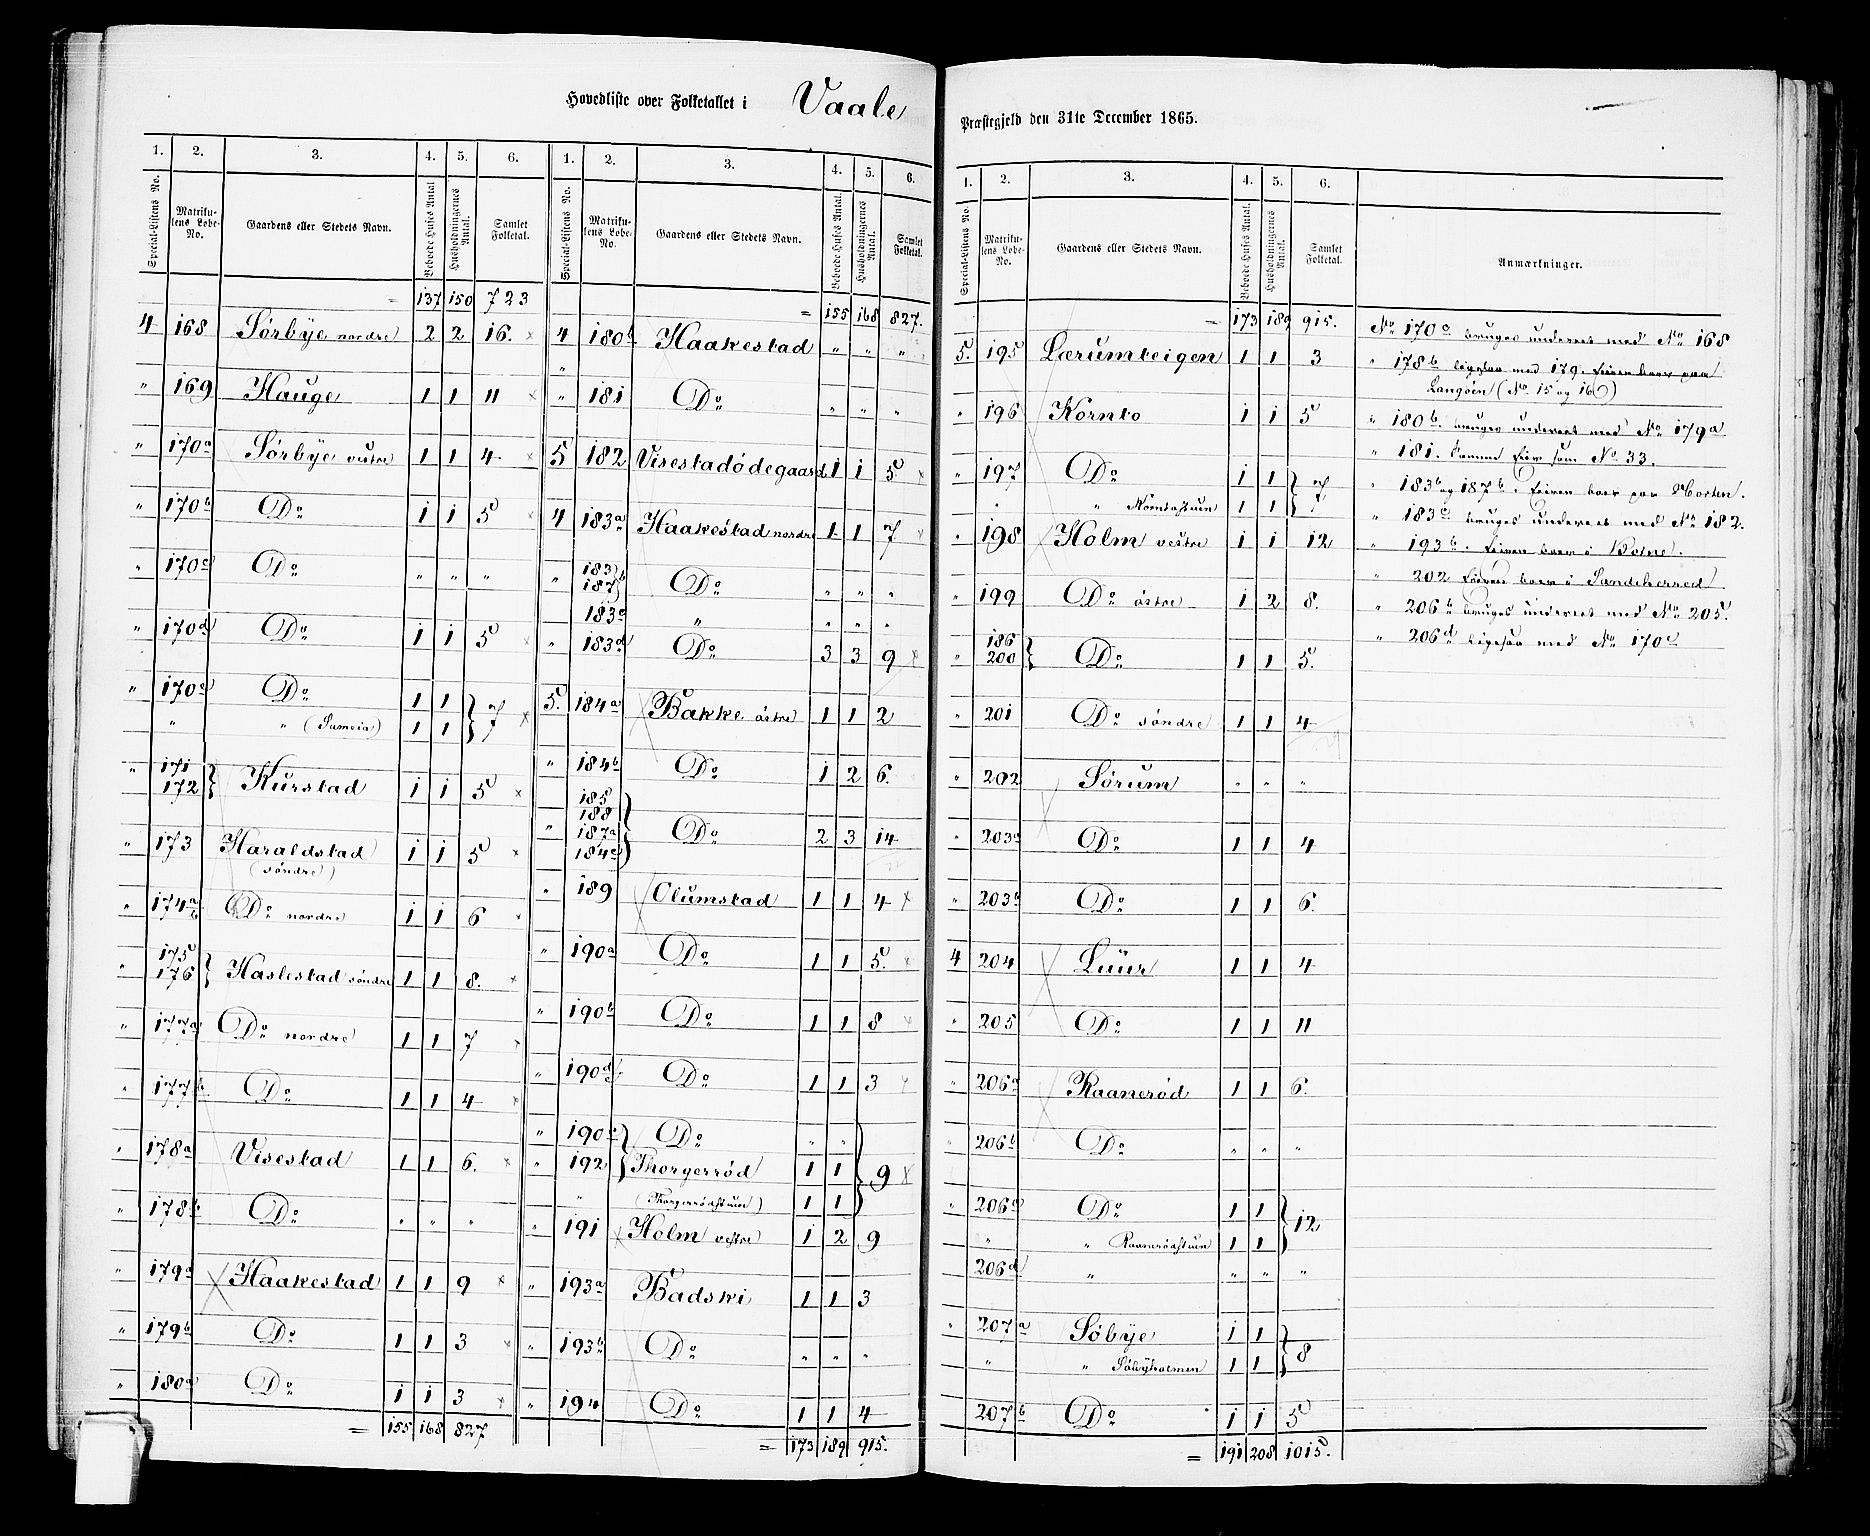 Hovedliste over Folketallet i Vaale
Præstegjeld den 31te December 1865.
1. 2. 3. 4. 5. 6.
Special-Listens No. Matrikulens Løbe-No. Gaardens eller Stedets Navn. Beboede Huses Antal Husholdningernes Antal. Samlet Folketal.
= 137 150 723
4 168 Sørbye nordre 2 2 16. ×
" 169 Hauge 1 1 11 ×
" 170a Sørbye vestre 1 1 4 ×
" 170b Do 1 1 5 ×
" 170c Do " " "
" 170d Do 1 1 5 ×
" 170e Do 1 1 } 7 ×
" " (Sameia) 1 1
" 171 172 } Kurstad 1 1 5 ×
" 173 Haraldstad 1 1 5 ×
(søndre)
" 174a b Do nordre 1 1 6 ×
" 175 176 } Haslestad søndre 1 1 8. ×
" 177a Do nordre 1 1 7 ×
" 177b Do 1 1 4 ×
" 178a Visestad 1 1 6. ×
" 178b Do " " "
" 179a Haakestad 1 1 9 ×
" 179b Do 1 1 3 ×
" 180a Do 1 1 3 ×
= 155 168 827
1. 2. 3. 4. 5. 6.
Special-Listens No. Matrikulens Løbe-No. Gaardens eller Stedets Navn. Beboede Huses Antal. Husholdningernes Antal. Samlet Folketal.
= 155 168 827.
4 180b Haakestad " " "
" 181 Do " " "
5 182 Visestadødegaard 1 1 5. ×
4 183a Haakestad nordre 1 1 7 ×
" 183 187 } b Do " " "
183c " " " "
" 183d Do 3 3 9 ×
5. 184a Bakke østre 1 1 2
" 184b Do 1 2 6.
" 185 188 187a 184c } Do 2 3 14
" 189 Olumstad 1 1 4 ×
" 190a Do 1 1 5. ×
" 190b Do 1 1 8 ×
" 190d Do 1 1 3 ×
" 190c } Do " " } 9 ×
" 192 } Thorgersrød 1 1
" (Thorgersrødstuen) 1 1
" 191 × Holm vestre 1 2 9
" 193a Badski 1 1 3
" 193b Do " " "
" 194 Do 1 1 4
= 173 189 915.
1. 2. 3. 4. 5. 6.
Special-Listens No. Matrikulens Løbe-No. Gaardens eller Stedets Navn. Beboede Huses Antal. Husholdningernes Antal. Samlet Folketal. Anmærkninger.
= 173 189 915.
5. 195 Lærumteigen 1 1 3
" 196 Kornto 1 1 5
" 197 Do 1 1 } 7
" " Korntostuen 1 1
" 198 Holm vestre 1 1 12
" 199 Do østre 1 2 8.
" 186 200 } Do 1 1 5.
" 201 Do søndre 1 1 4
" 202 Sørum " " "
" 203a Do 1 1 4
" 203b Do 1 1 6.
4 204 Luur 1 1 4
" 205 Do 1 1 11
" 206a Raanerød 1 1 6.
" 206b Do " " "
" 206c Do 1 1 } 12
" " Raanerødstuen 1 1
206d " " " "
" 207a Søbye 1 1 } 8
" " Søbyholmen 1 1
207b Do 1 1 5
= 191 208 1015.
No 170c bruges underet med No 168
" 178b ligesaa med 179. Eieren boer paa
Langøen (No 15 og 16)
" 180b. bruges underet med No 179a
" 181. Samme Eier som No 33.
" 183b og 187b. Eieren boer paa Horten.
" 183c bruges underet med No 182.
" 193b. Eieren boer i Botne.
" 202 Eieren boer i Sandeherred
" 206b bruges underet med No 205.
" 206d ligesaa med No 170c